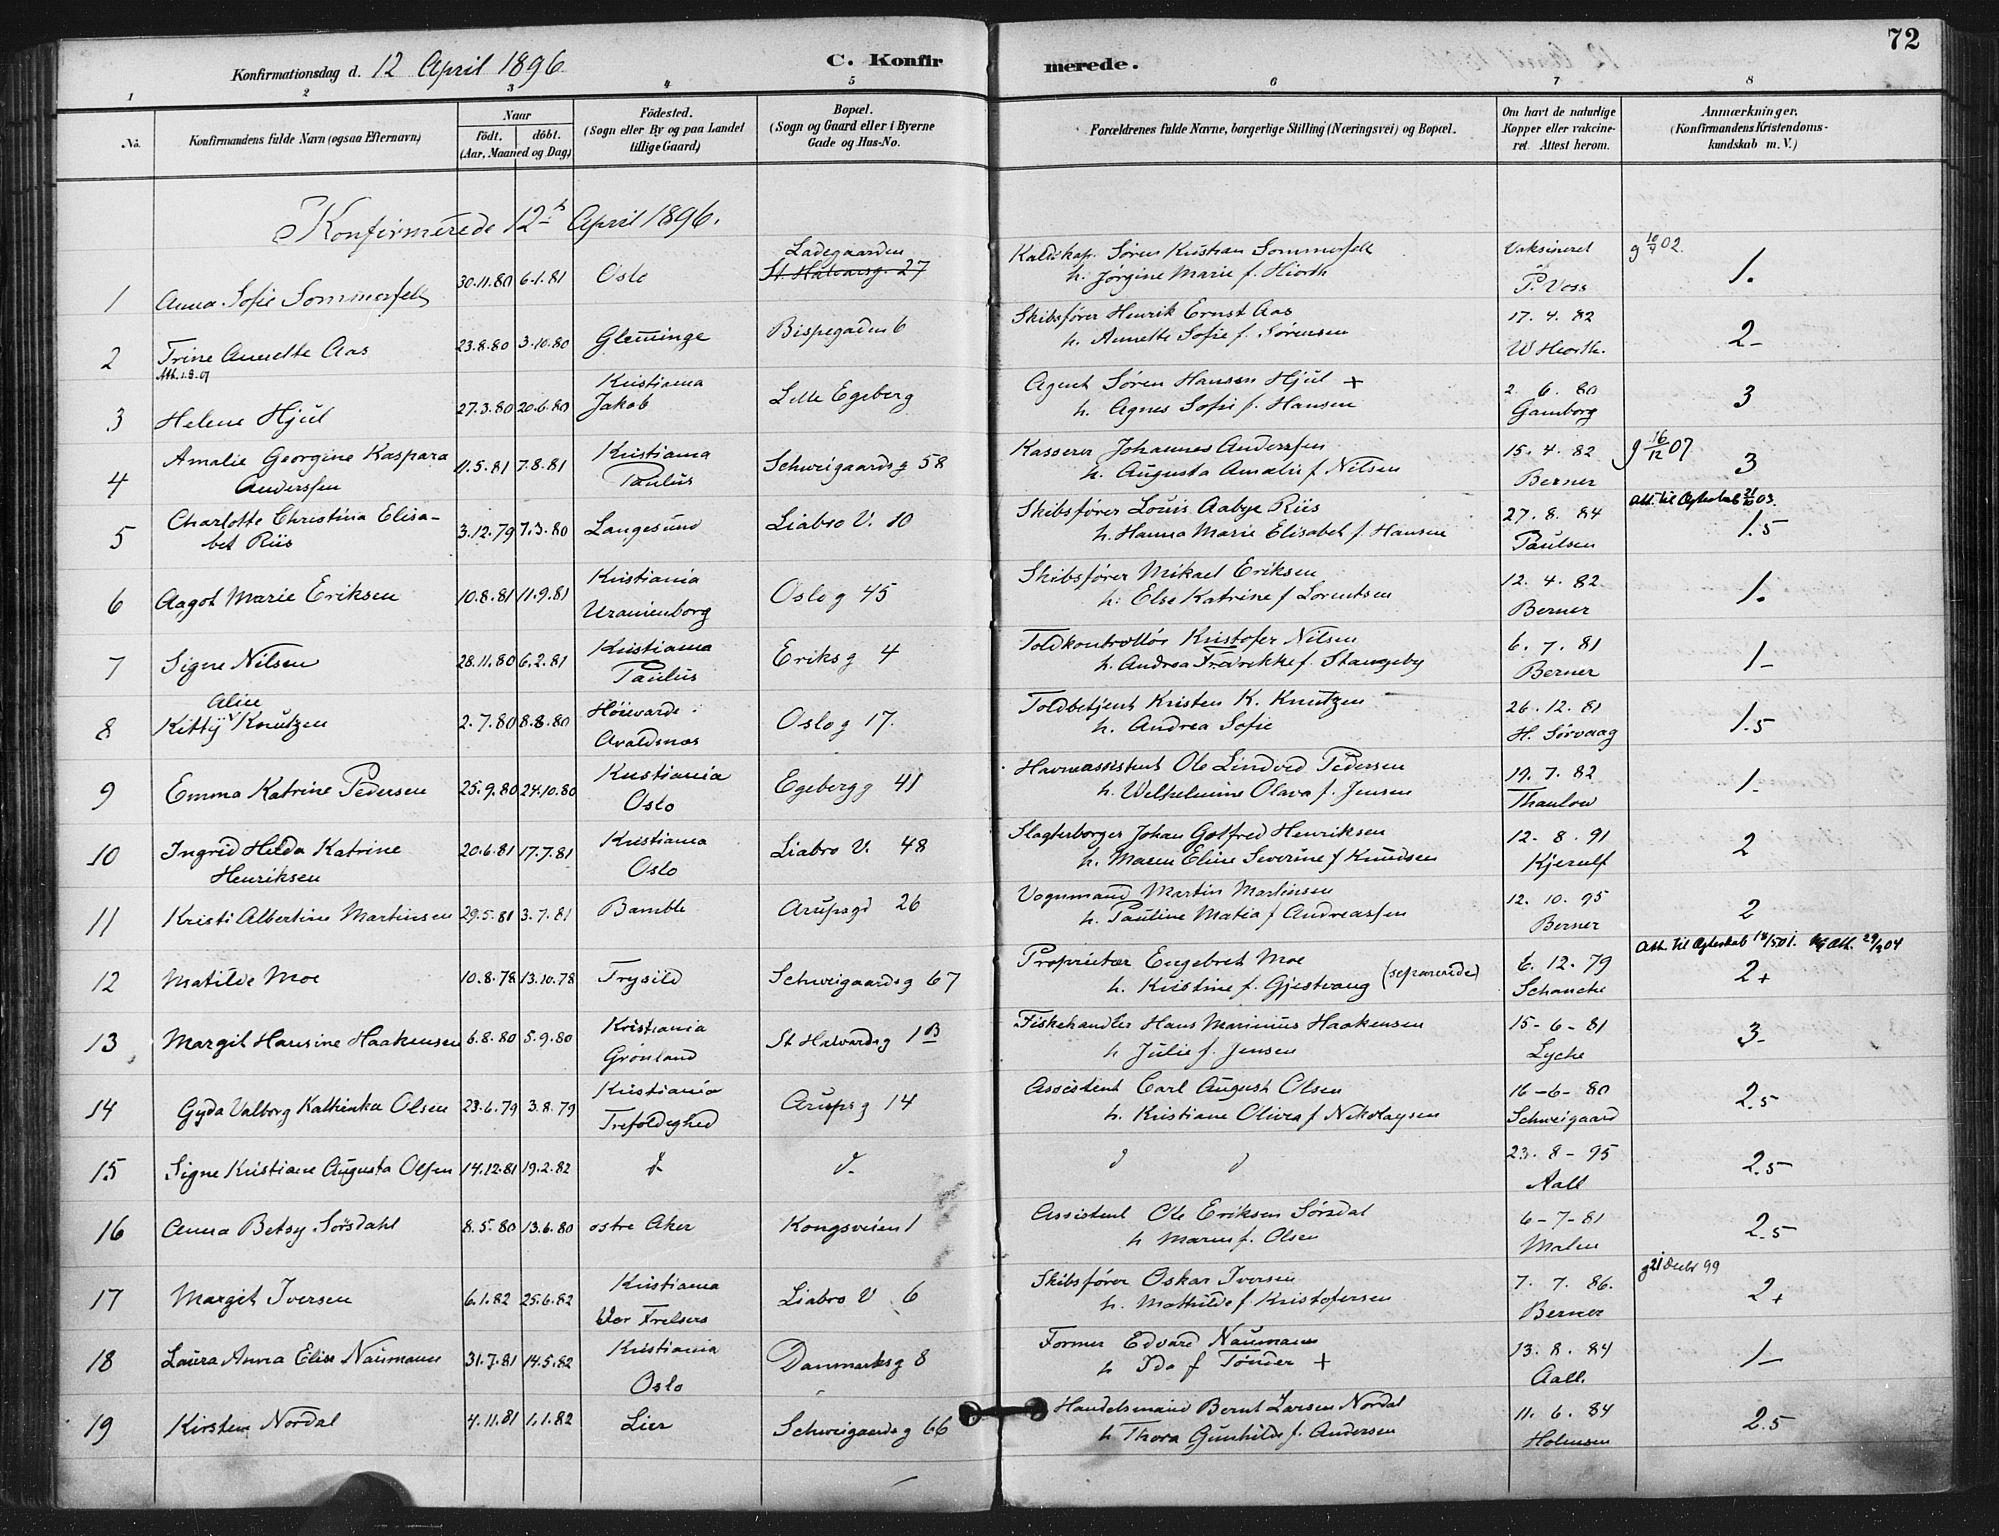 72
Konfirmationsdag d. 12 April 1896
C. Konfirmerede.
1 2 3 4 5 6 7 8
No.
Konfirmandens fulde Navn (ogsaa Efternavn)
Naar
født. døbt.
(Aar, Maaned og Dag)
Fødested.
(Sogn eller By og paa Landet
tillige Gaard)
Bopæl.
(Sogn og Gaard eller i Byerne
Gade og Hus-No.
Forældrenes fulde Navne, borgerlige Stilling (Næringsvei) og Bopæl.
Om havt de naturlige
Kopper eller vakcine-
ret. Attest herom.
Anmærkninger.
(Konfirmandens Kristendoms-
kundskab m. V.)
Konfirmerede 12te April 1896.
1 Anna Sofie Sommerfelt 30.11.80 6.1.81 Oslo Ladegaarden St. Halvardsg. 27
Søren Kristian Sommerfelt
h. Jørgine Marie f. Hiorth
Vaksineret
P. Voss
g 10/9 02
1.
2 Trine Annette Aas 23.8.80 3.10.80 Glemminge Bispegaden 6
Att. 1.3.07
Skibsfører Henrik Ernst Aas
h. Annette Sofie f. Sørensen
17. 4. 82
W Hiorth.
2-
3 Helene Hjul 27.3.80 20.6.80 Kristiania Jakob Lille Egeberg
Agent Søren Hansen Hjul +
h. Agnes Sofie f. Hansen
2. 6. 80
Gamborg
3
4 Amalie Georgine Kaspara
Anderssen 11.5.81 7.8.81 Kristiania Paulus Schweigaardsg 58
Kasserer Johannes Anderssen
h. Augusta Amalie f. Nilsen
15. 4. 82
Berner
g 16/12 07
3
5 Charlotte Christina Elisa-
bet Riis 3.12.79 7.3.80 Langesund Liabro V. 10
Skibsfører Louis Aabye Riis
h. Hanna Marie Elisabet f. Hansen
27. 8. 84
Paulsen
Att. til Ægteskab 03.
1.5
6 Aagot Marie Eriksen 10.8.81 11.9.81 Kristiania Uranienborg Oslo g 45
Skibsfører Mikael Eriksen
h. Else Katrine f Lorentsen
12. 4. 82
Berner
1.
7 Signe Nilsen 28.11.80 6.2.81 Kristiania Paulus Eriksg 4
Toldkontrollør Kristofer Nilsen
h. Andrea Fredrikke f. Stangeby
6. 7. 81
Berner
1-
8 Kitty Alice Knutzen 2.7.80 8.8.80 Høievarde Avaldsnæs Oslo g 17.
Toldbetjent Kristen K. Knutzen
h. Andrea Sofie
26. 12. 81
H. Sørvaag
1.5
9 Emma Katrine Pedersen 25.9.80 24.10.80 Kristiania Oslo Egebergg 41
Havneassistent Ole Lindved Pedersen
h. Wilhelmine Olava f. Jensen
19. 7. 82
Thaulow
1-
10 Ingrid Hilda Katrine
Henriksen 20.6.81 17.7.81 Kristiania Oslo Liabro V. 48
Slagterborger Johan Gotfred Henriksen
h. Maren Eline Severine f Knudsen
12. 8. 91
Kjerulf
2
11 Kristi Albertine Martinsen 29.5.81 3.7.81 Bamble Arupsgd 26
Vognmand Martin Martinsen
h. Pauline Matia f Andreassen
12. 10. 95
Berner
2
12 Matilde Moe 10.8.78 13.10.78 Trysild Schweigaardsg 67
Proprietær Engebret Moe
h. Kristine f. Gjestvang (separerede)
6. 12. 79
Schancke
Att. til Ægteskab 14/5 01. Att. 29/3 04
2+
13 Margit Hansine Haakensen 6.8.80 5.9.80 Kristiania Grønland St Halvardsg 1 B
Fiskehandler Hans Marinius Haakensen
h Julie f. Jensen
15-6-81
Lyche
3-
14 Gyda Valborg Kathinka Olsen 23.6.79 3.8.79 Kristiania Trefoldighed Arupsg 14
Assistent Carl August Olsen
h. Kristiane Olivea f Nikolaysen
16-6-80
Schweigaard
2.5
15 Signe Kristiane Augusta Olsen 14.12.81 19.2.82 d. d.
d d
23. 8 - 95
Aall
2.5
16 Anna Betsy Sørsdahl 8.5.80 13.6.80 østre Aker Kongsveien 1
Assistent Ole Eriksen Sørsdal
h Maren f. Olsen
6-7-81
Malm
2.5
17 Margit Iversen 6.1.82 25.6.82 Kristiania Vor Frelsers Liabro V 6
Skibsfører Oskar Iversen
h. Mathilde f. Kristofersen
7. 7. 86.
Berner
g 21 Decbr 99
2+
18 Laura Anna Elise Naumann 31.7.81 14.5.82 Kristiania Oslo Danmarksg 8
Former Edvard Naumann
h Ida f Tønder +
13. 8. 84
Aall.
1-
19 Kirsten Nordal 4.11.81 1.1.82 Lier Schweigaardsg 66
Handelsmand Bernt Larsen Nordal
h Thora Gunhilde f. Andersen
11. 6. 84
Holmsen
2.5